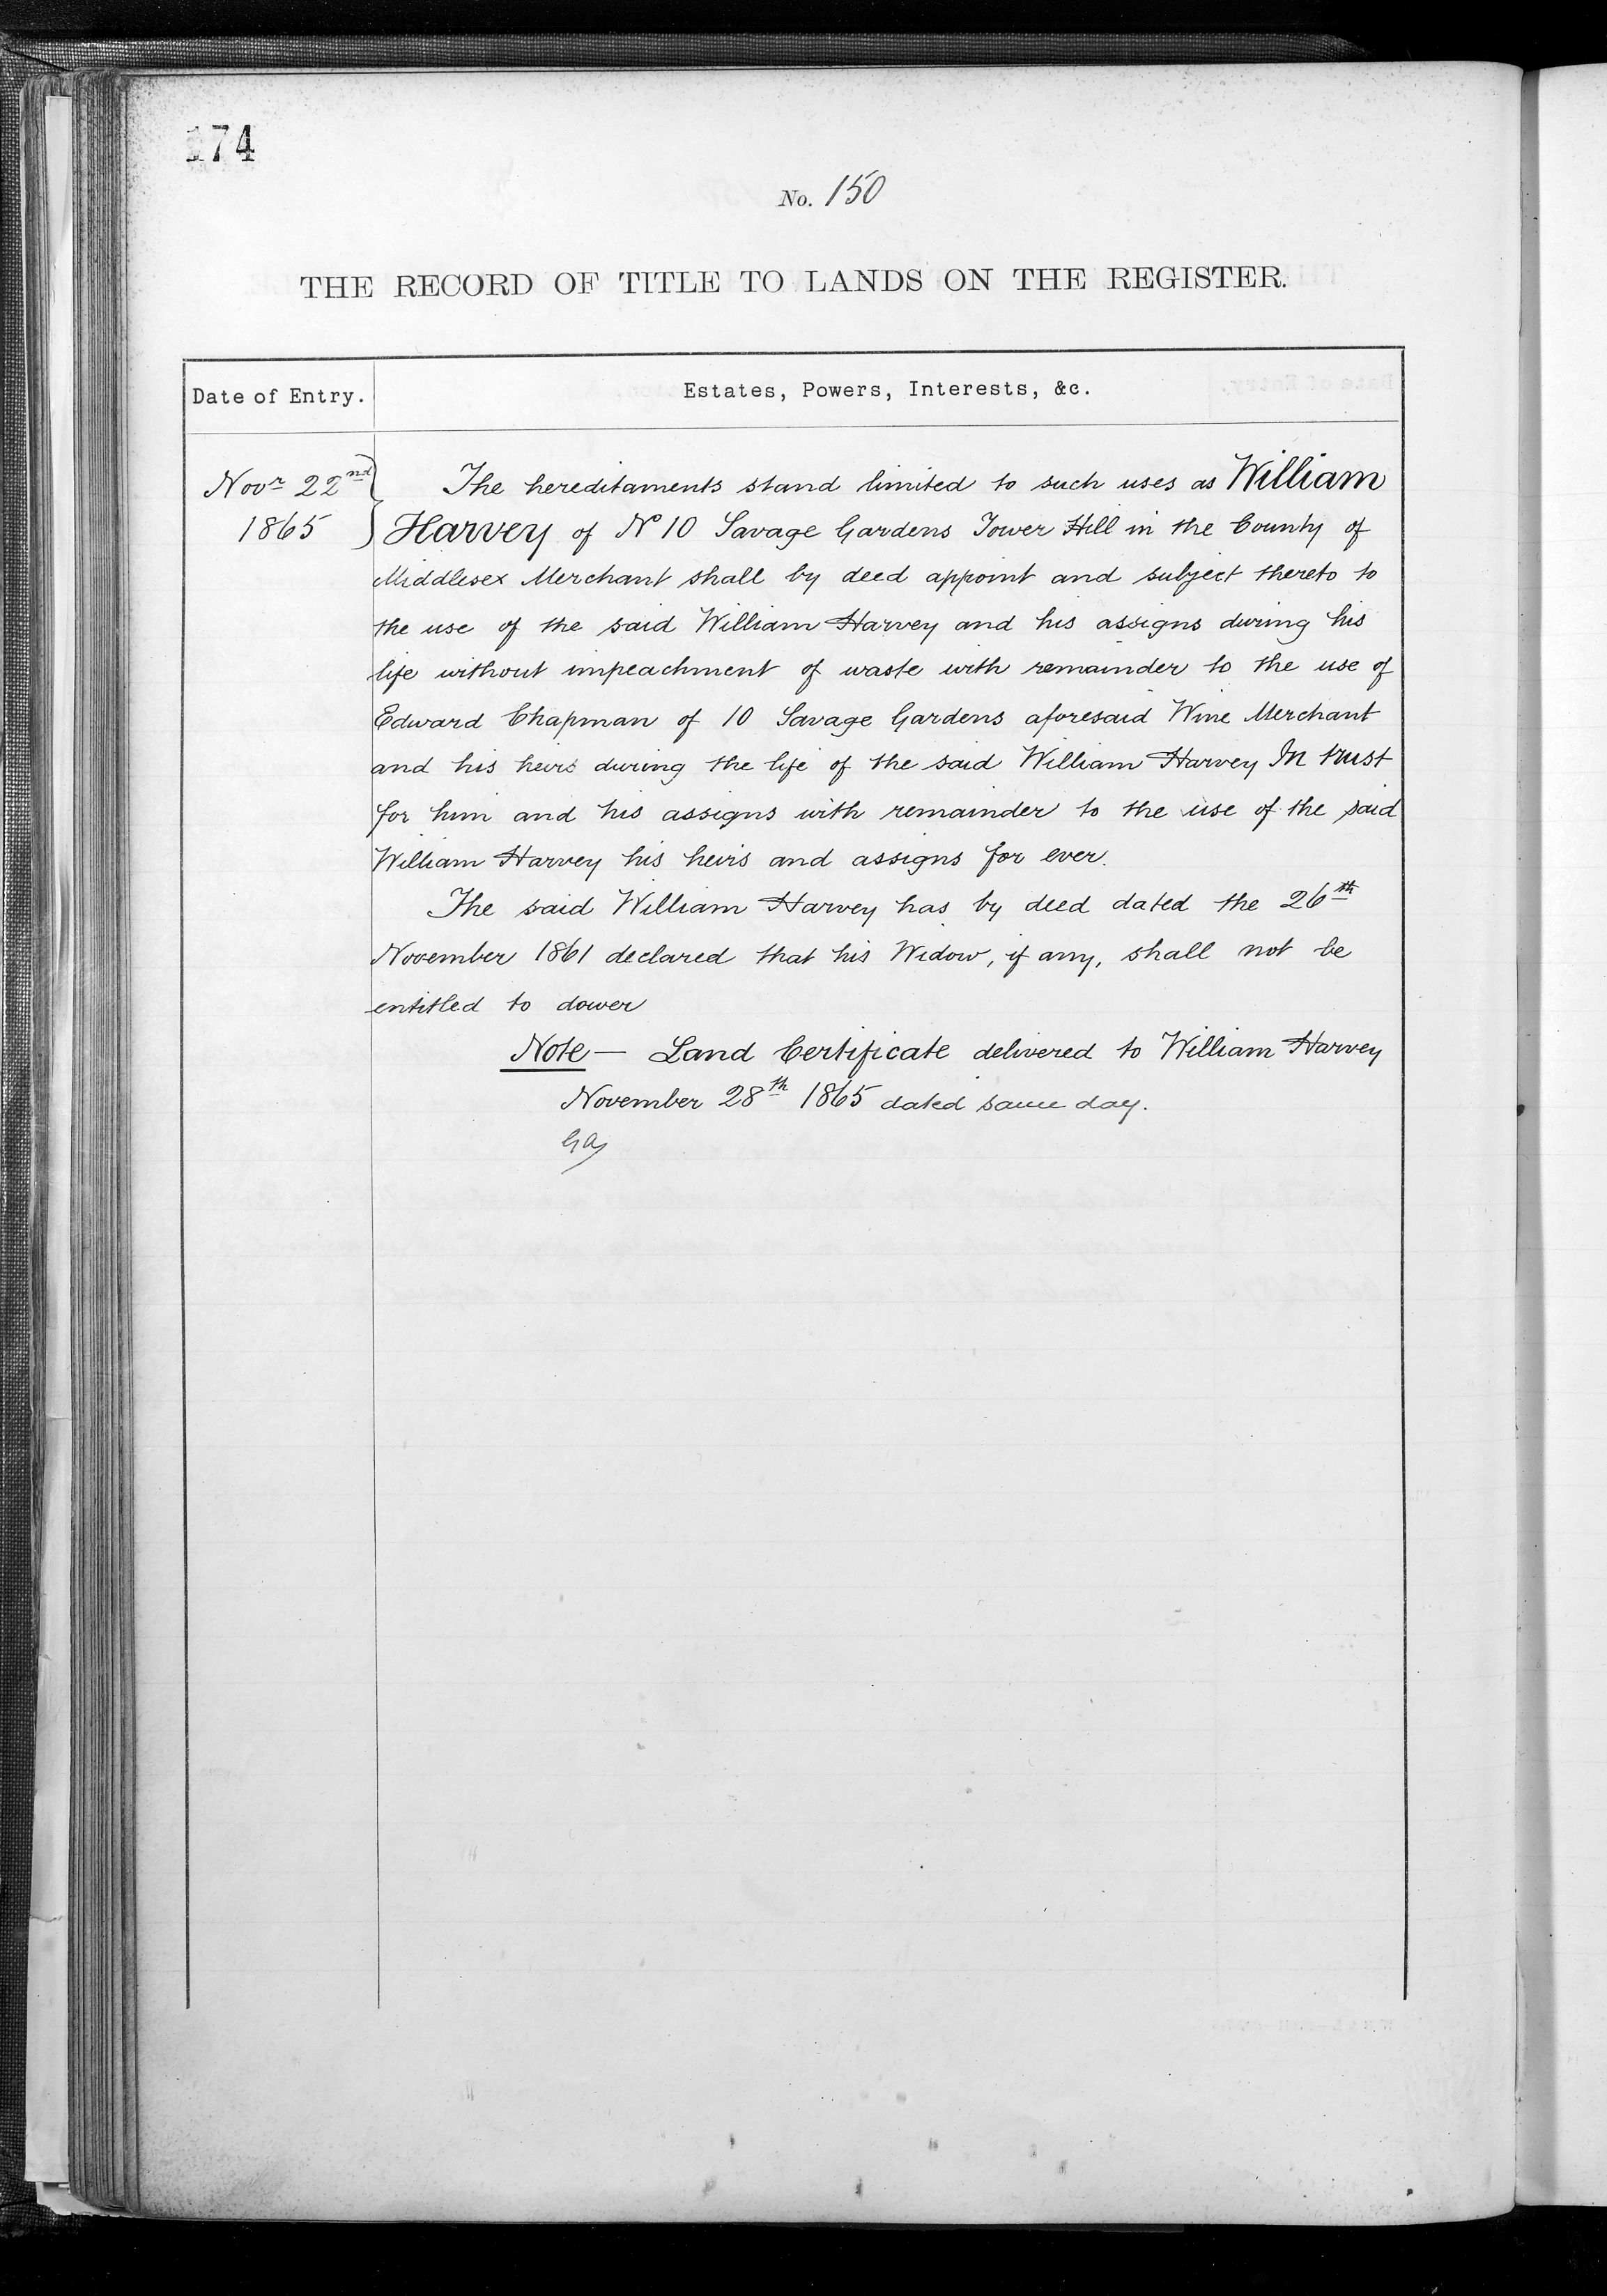 174
No. 150
THE RECORD OF TITLE TO LANDS ON THE REGISTER.
Date of Entry.
Estates, Powers, Interests, &c.
Novr 22nd
1865
The hereditaments stand limited to such uses as William
Harvey of No 10 Savage Gardens Tower Hill in the County of
Middlesex Merchant shall by deed appoint and subject thereto to
the use of the said William Harvey and his assigns during his
life without impeachment of waste with remainder to the use of
Edward Chapman of 10 Savage Gardens aforesaid Wine Merchant
and his heirs during the life of the said William Harvey In trust
for him and his assigns with remainder to the use of the said
William Harvey his heirs and assigns for ever.
The said William Harvey has by deed dated the 26th
November 1861 declared that his Widow, if any, shall not be
entitled to dower
Note — Land Certificate delivered to William Harvey
November 28th 1865 dated same day.